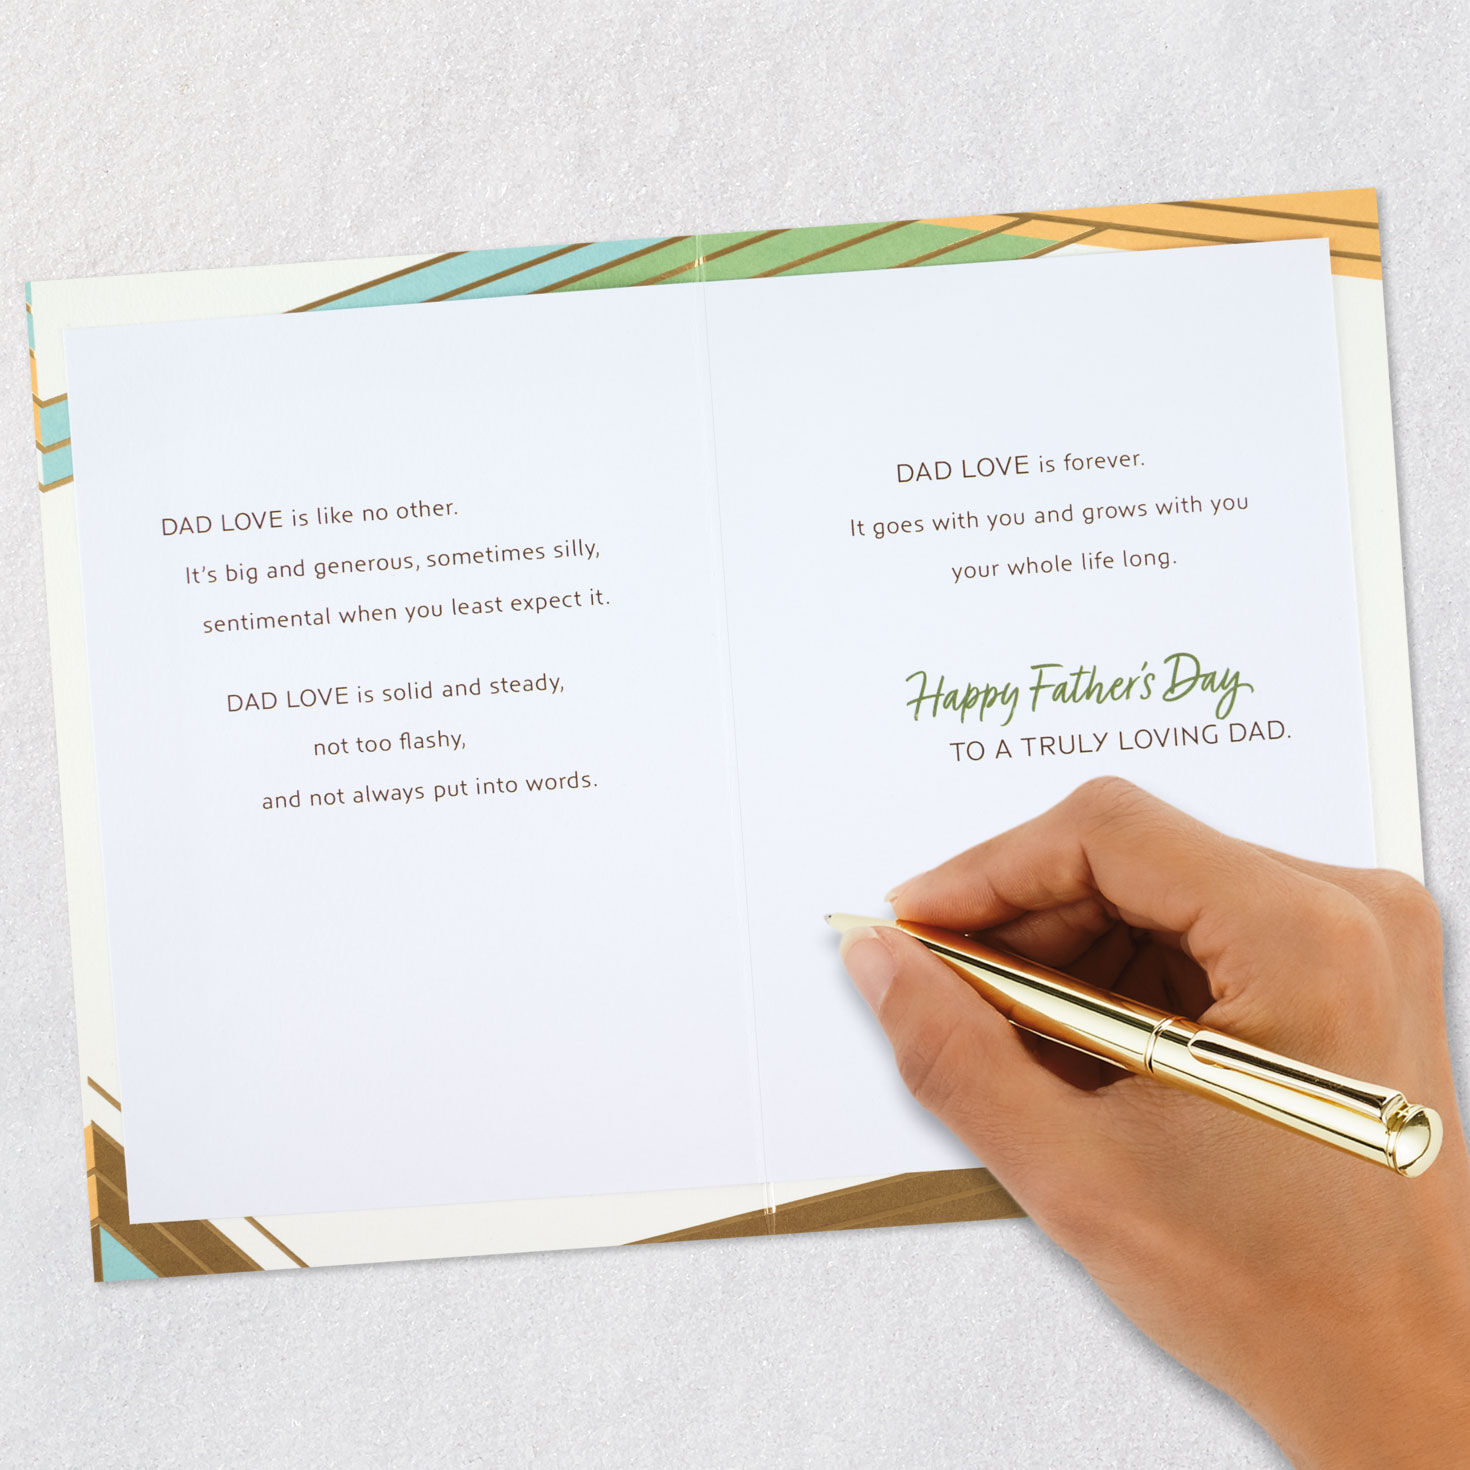 DAD LOVE is like no other.
It's big and generous, sometimes silly,
sentimental when you least expect it.
DAD LOVE is solid and steady,
not too flashy,
and not always put into words.
DAD LOVE is forever.
It goes with you and grows with you
your whole life long.
Happy Father's Day
TO A TRULY LOVING DAD.